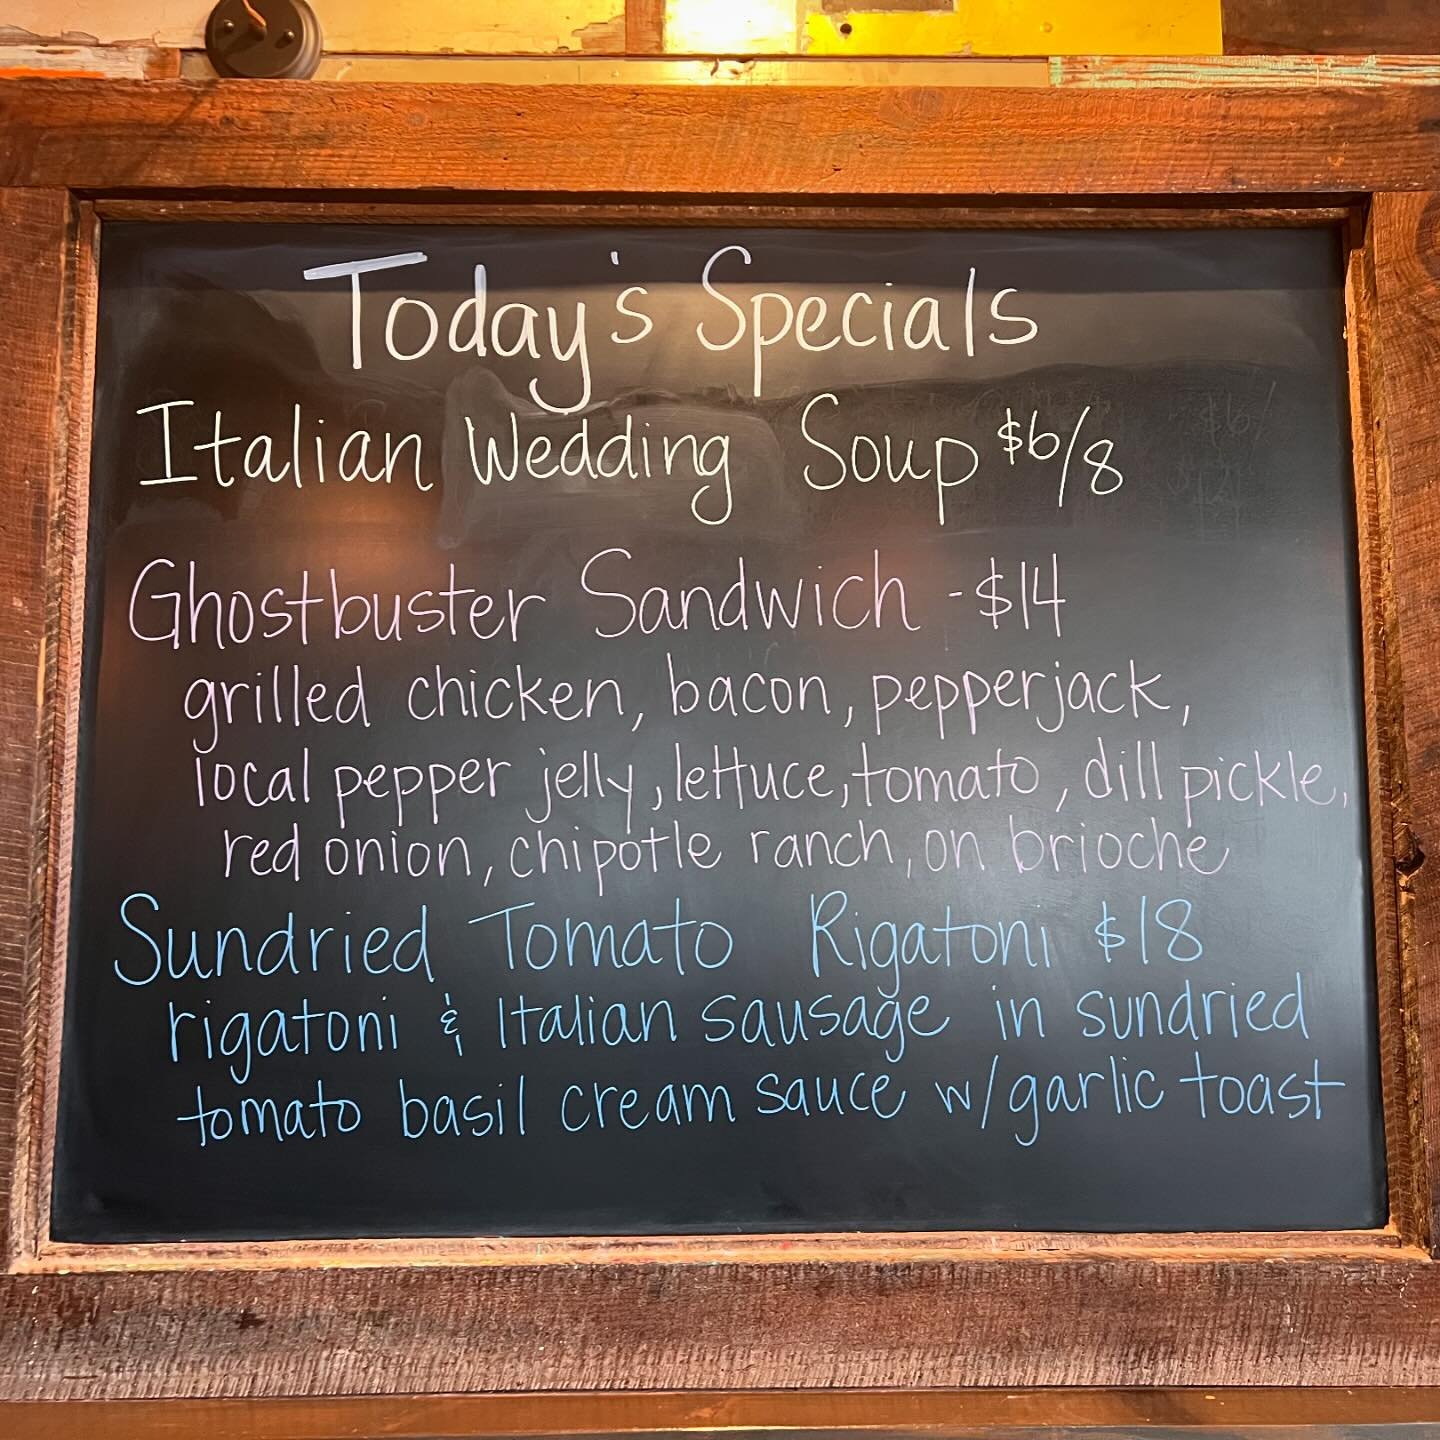 Today's Specials
Italian Wedding Soup $6/8
Ghostbuster Sandwich - $14
grilled chicken, bacon, pepperjack,
local pepper jelly, lettuce, tomato, dill pickle,
red onion, chipotle ranch, on brioche
Sundried Tomato Rigatoni $18
rigatoni & Italian sausage in sundried
tomato basil cream sauce w/garlic toast